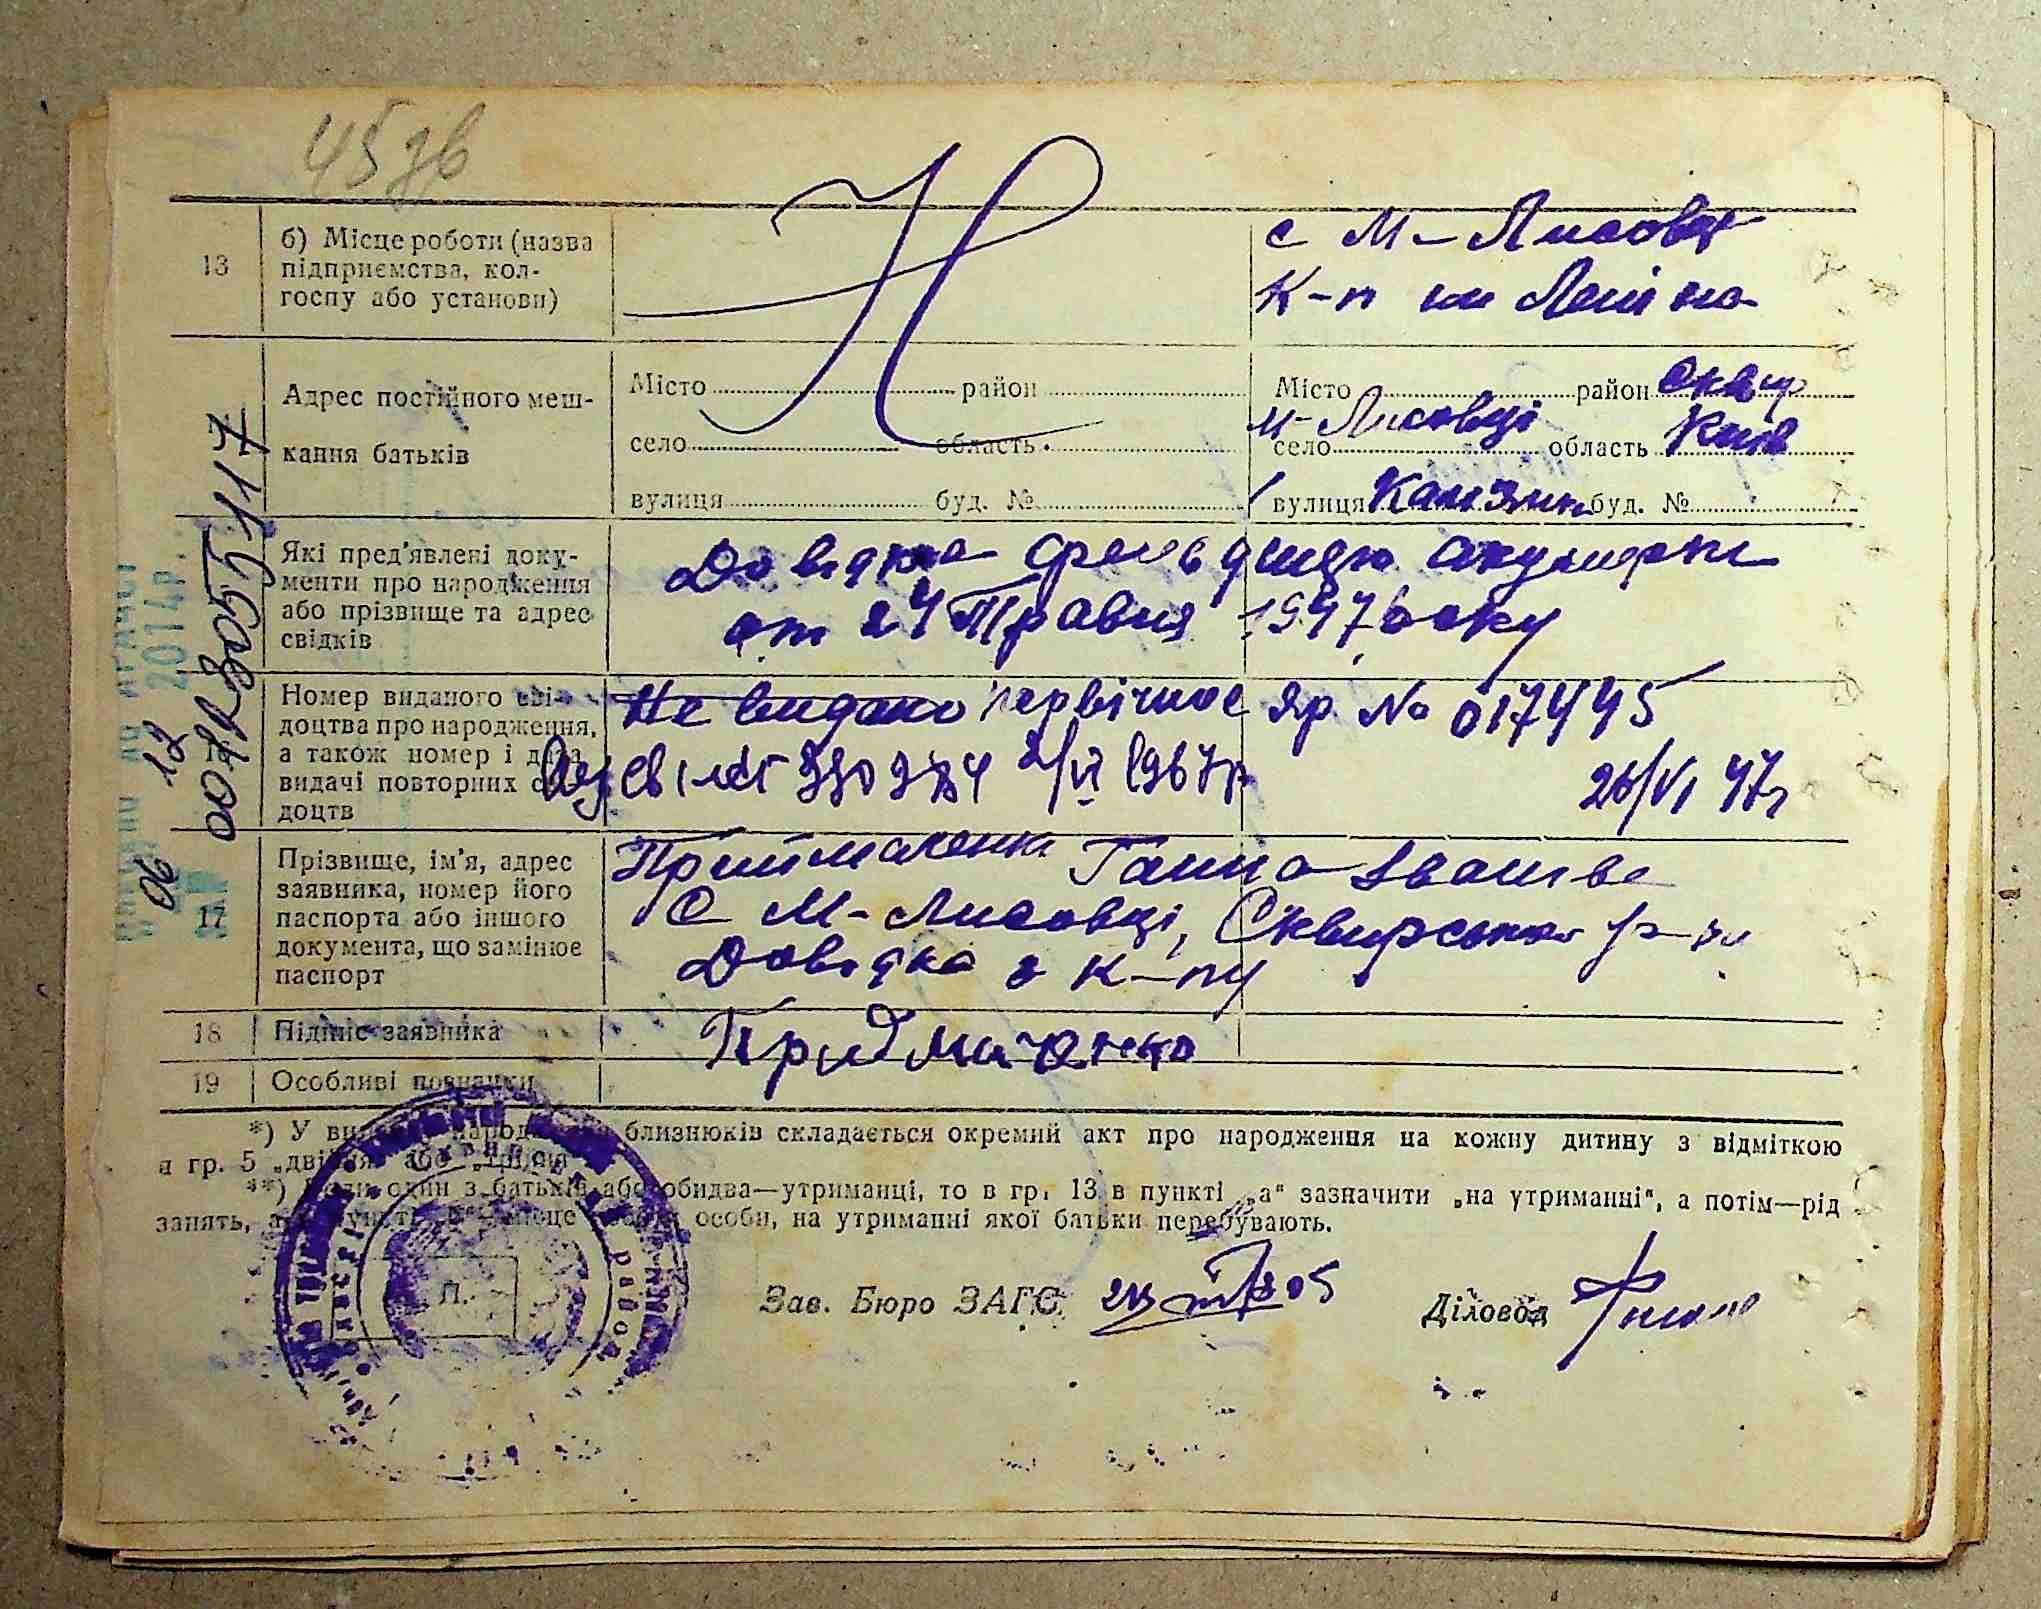 45 зв
13
б) Місце роботи (назва
підприємства, кол-
госпу або установи)
с М-Лисовці
К-п им Леніна
Адрес постійного меш-
кання батьків
Місто район
село область
вулиця буд. №
Місто район Сквир
село М-Лисовці область Київ
вулиця буд. №
Які пред'явлені доку-
менти про народження
або прізвище та адрес
свідків
Довідка акушерки
от 24 Травня 1947 року
Номер виданого сві-
доцтва про народження,
а також номер і дата
видачі повторних сві-
доцтв
Не видано первічное Яр № 017445
330384 2/VI 1967р
26/VI 47р
17
Прізвище, ім'я, адрес
заявника, номер його
паспорта або іншого
документа, що замінює
паспорт
Приймаченко Ганна Іванівна
С М-Лисовці, Сквирського р-ну
Довідка з к-пу
18
Підпис заявника
Приймаченко
19
Особливі позначки
*) У випадку народження близнюків складається окремий акт про народження на кожну дитину з відміткою
в гр. 5 „двійня" або „трійня".
**) Коли один з батьків або обидва—утриманці, то в гр. 13 в пункті „а" зазначити „на утриманні", а потім—рід
занять, а в пункті „б" місце роботи особи, на утриманні якої батьки перебувають.
Зав. Бюро ЗАГС
Діловод
П.
2014р.
06 12
00423055117